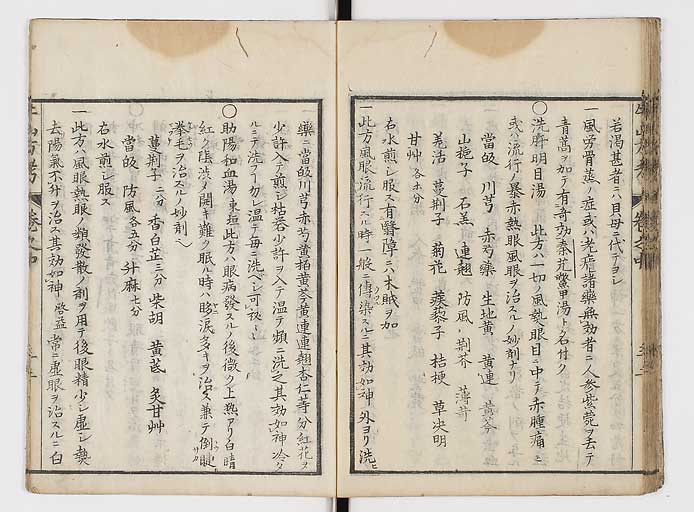 若渇甚者ニハ貝母ニ代テヨシ
一風労骨蒸ノ症或ハ老瘧諸藥無効者ニ人参紫菀ヲ去テ
青蒿ヲ加テ有奇効秦艽鱉甲湯ト名付ク
〇洗肝明目湯 此方ハ一切ノ風熱眼目ニ中テ赤腫痛シ
或ハ流行ノ暴赤熱眼風眼ヲ治スルノ妙剤ナリ
當皈 川芎 赤芍藥 生地黄 黄連 黄芩
山梔子 石羔 連翹 防風 荆芥 薄荷
羌活 蔓荆子 菊花 蒺藜子 桔梗 草决明
甘艸各
右水煎シ服ス有醫障ニハ木賊ヲ加
一此方風眼流行スル時一般ニ傳染スルニ其効如神外ヨリ洗
藥ニ當皈川芎赤芍黄柏黄芩黄連連翹杏仁等分紅花ヲ
少許入テ煎ジ枯礬少許ヲ入テ温テ頻ニ洗之其効如神冷
ルニテ洗フ勿レ温テ毎ニ洗ベシ可秘〻
〇助陽和血湯 東垣此方ハ眼病發スルノ後微ク上熱アリ白睛
紅ク隱渋ノ開キ難ク眠ル時ハ眵涙多キヲ治ス兼テ倒睫
拳毛ヲ治スルノ妙剤也
蔓荆子二分 香白芷三分 柴胡 黄芪 炙甘艸
當皈 防風各五分 升麻七分
右水煎シ服ス
一此方ハ風眼熱眼ノ類發散ノ剤ヲ用テ後眼精少シ虚シ熱
去陽氣不升ヲ治ス其効如神 啓益常ニ虚眼ヲ治スルニ白